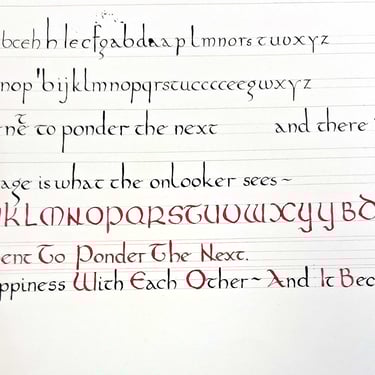 bceh h lecfgabdaaplmnorstuvxyz
nop"bijklmnopqrstucccceegwxyz
to ponder the next and there
age is what the onlooker sees ~
KLMNOPQRSTUVWXYYBD
ent To Ponder The Next.
ppiness With Each Other ~ And It Bec